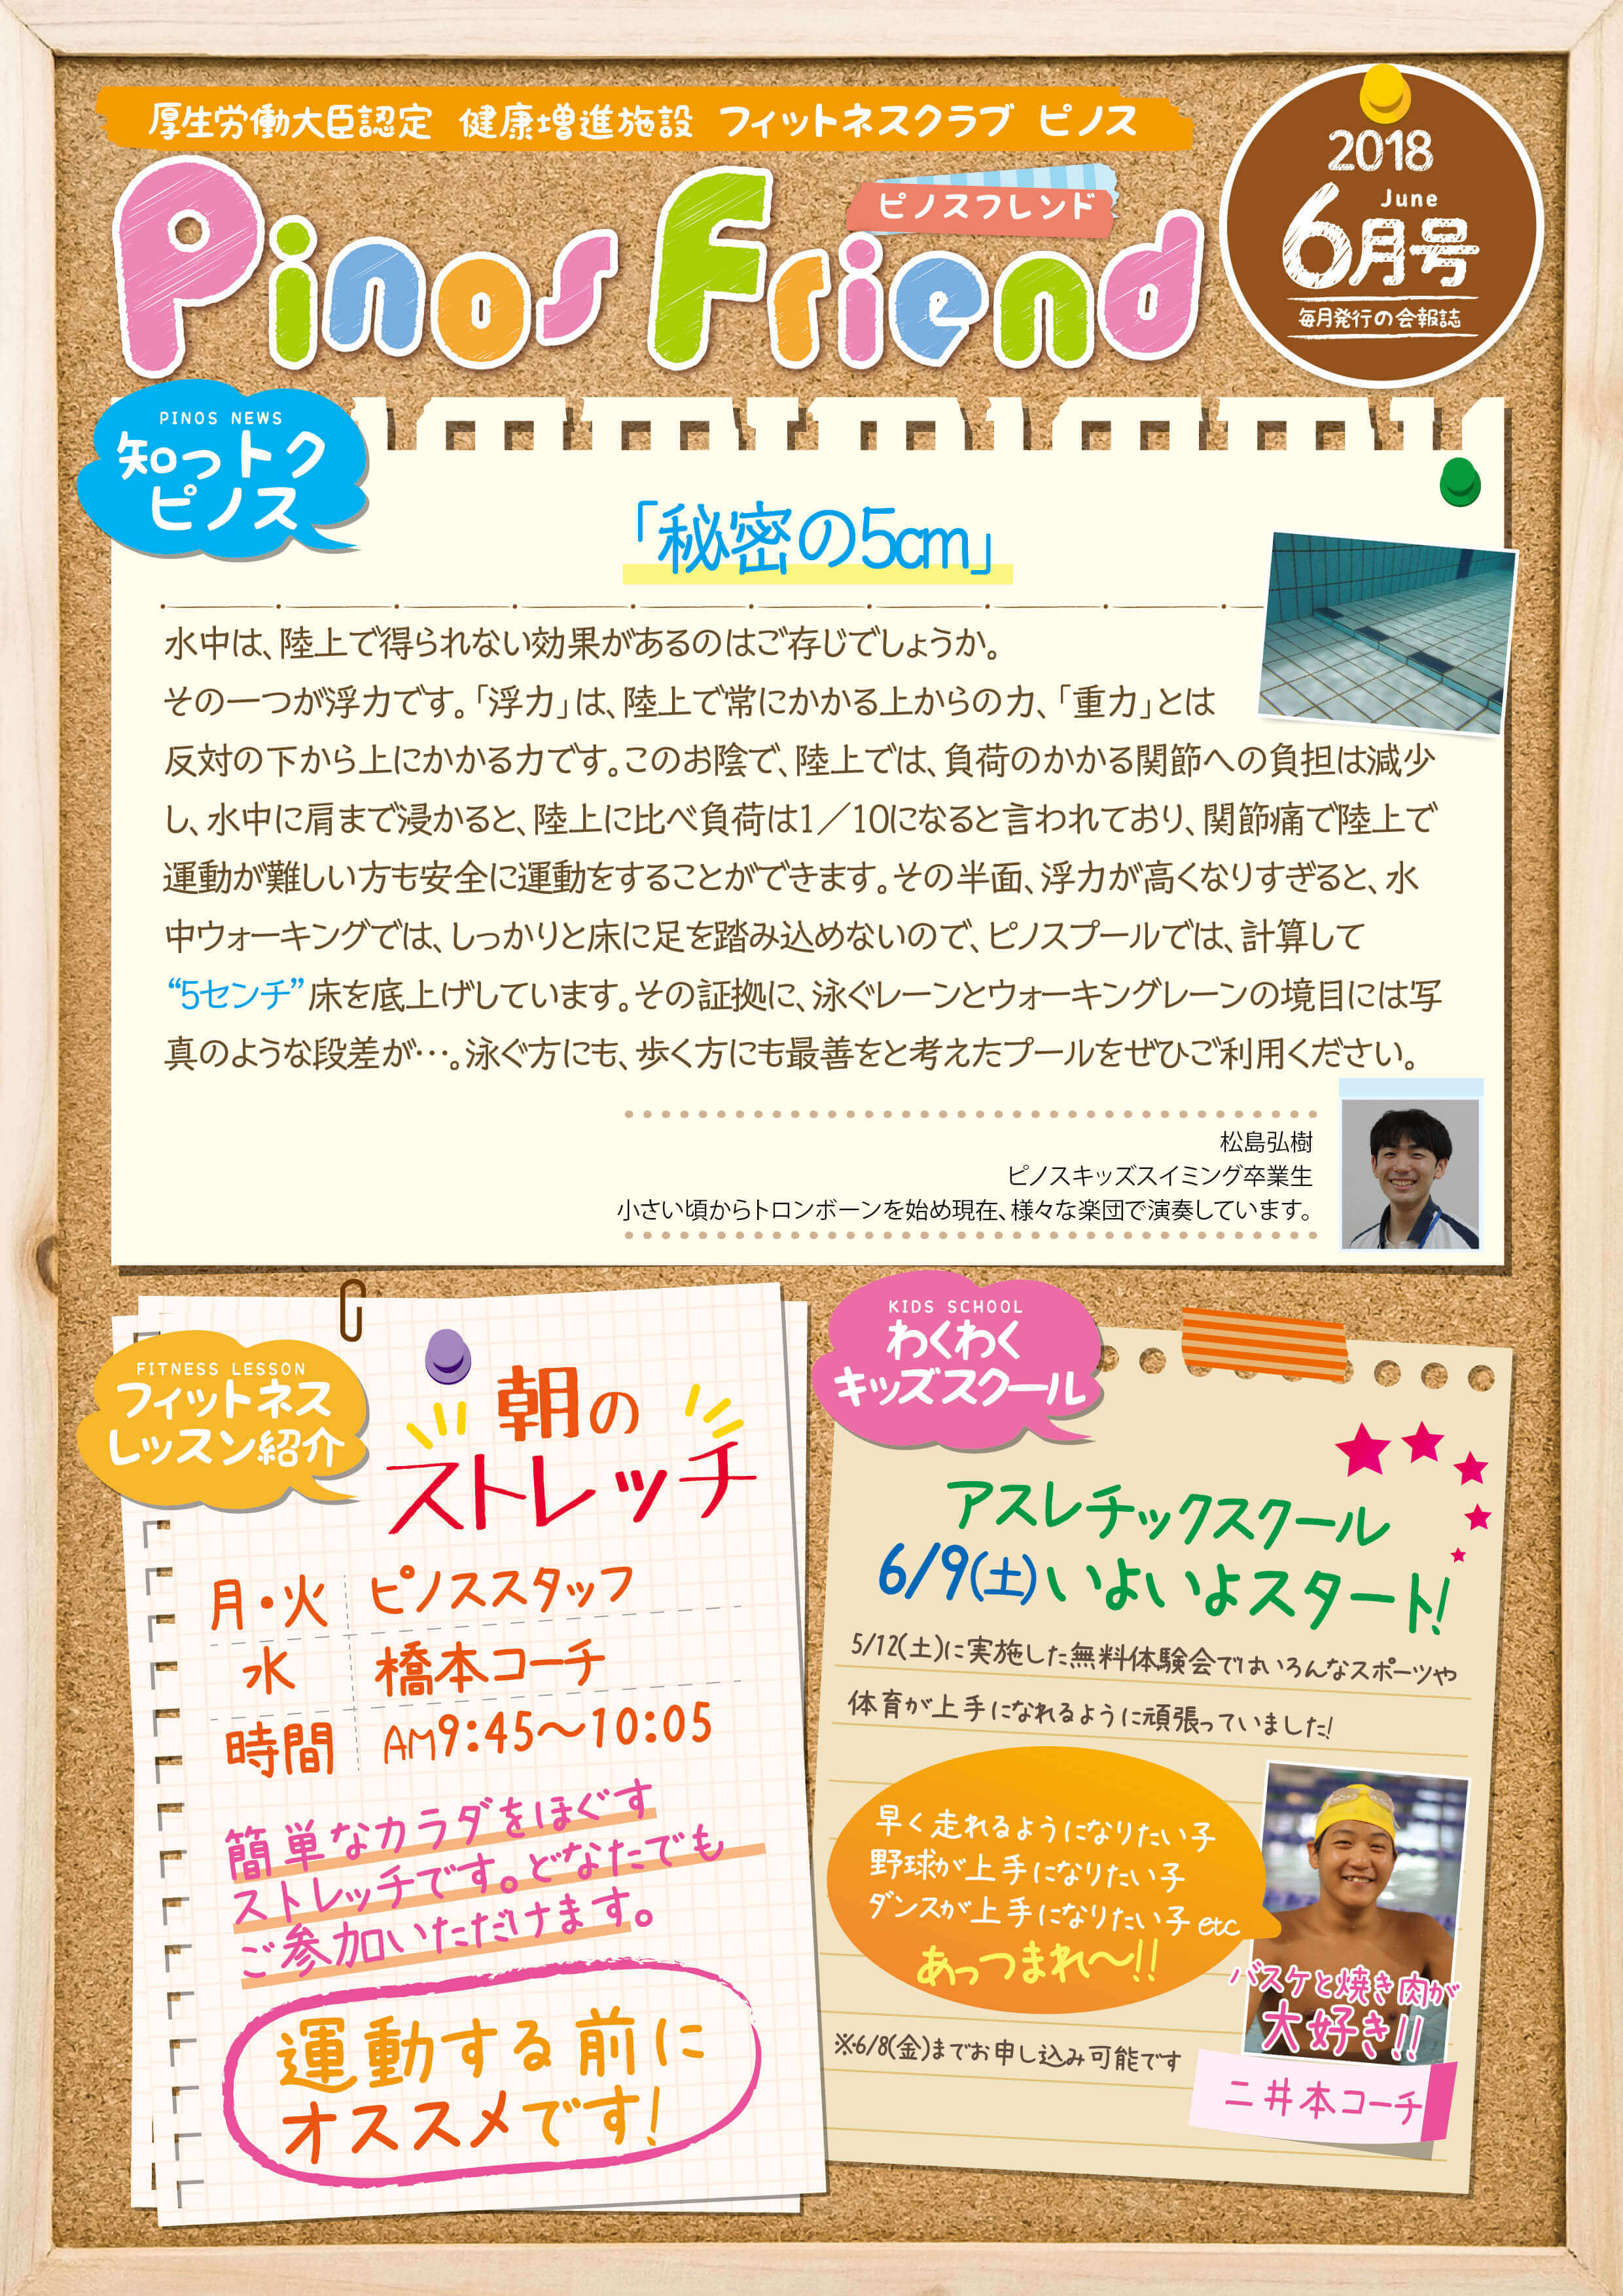 厚生労働大臣認定 健康増進施設 フィットネスクラブ ピノス
Pinos Friend
ピノスフレンド
2018
June
6月号
毎月発行の会報誌
PINOS NEWS
知っトク
ピノス
「秘密の5cm」
水中は、陸上で得られない効果があるのはご存じでしょうか。
その一つが浮力です。「浮力」は、陸上で常にかかる上からの力、「重力」とは
反対の下から上にかかる力です。このお陰で、陸上では、負荷のかかる関節への負担は減少
し、水中に肩まで浸かると、陸上に比べ負荷は1／10になると言われており、関節痛で陸上で
運動が難しい方も安全に運動をすることができます。その半面、浮力が高くなりすぎると、水
中ウォーキングでは、しっかりと床に足を踏み込めないので、ピノスプールでは、計算して
“5センチ”床を底上げしています。その証拠に、泳ぐレーンとウォーキングレーンの境目には写
真のような段差が…。泳ぐ方にも、歩く方にも最善をと考えたプールをぜひご利用ください。
松島弘樹
ピノスキッズスイミング卒業生
小さい頃からトロンボーンを始め現在、様々な楽団で演奏しています。
FITNESS LESSON
フィットネス
レッスン紹介
朝の
ストレッチ
月・火 ピノススタッフ
水 橋本コーチ
時間 AM9:45〜10:05
簡単なカラダをほぐす
ストレッチです。どなたでも
ご参加いただけます。
運動する前に
オススメです!
KIDS SCHOOL
わくわく
キッズスクール
アスレチックスクール
6/9(土)いよいよスタート!
5/12(土)に実施した無料体験会ではいろんなスポーツや
体育が上手になれるように頑張っていました!
早く走れるようになりたい子
野球が上手になりたい子
ダンスが上手になりたい子 etc
あっつまれ〜!!
バスケと焼き肉が
大好き!!
※6/8(金)までお申し込み可能です
二井本コーチ